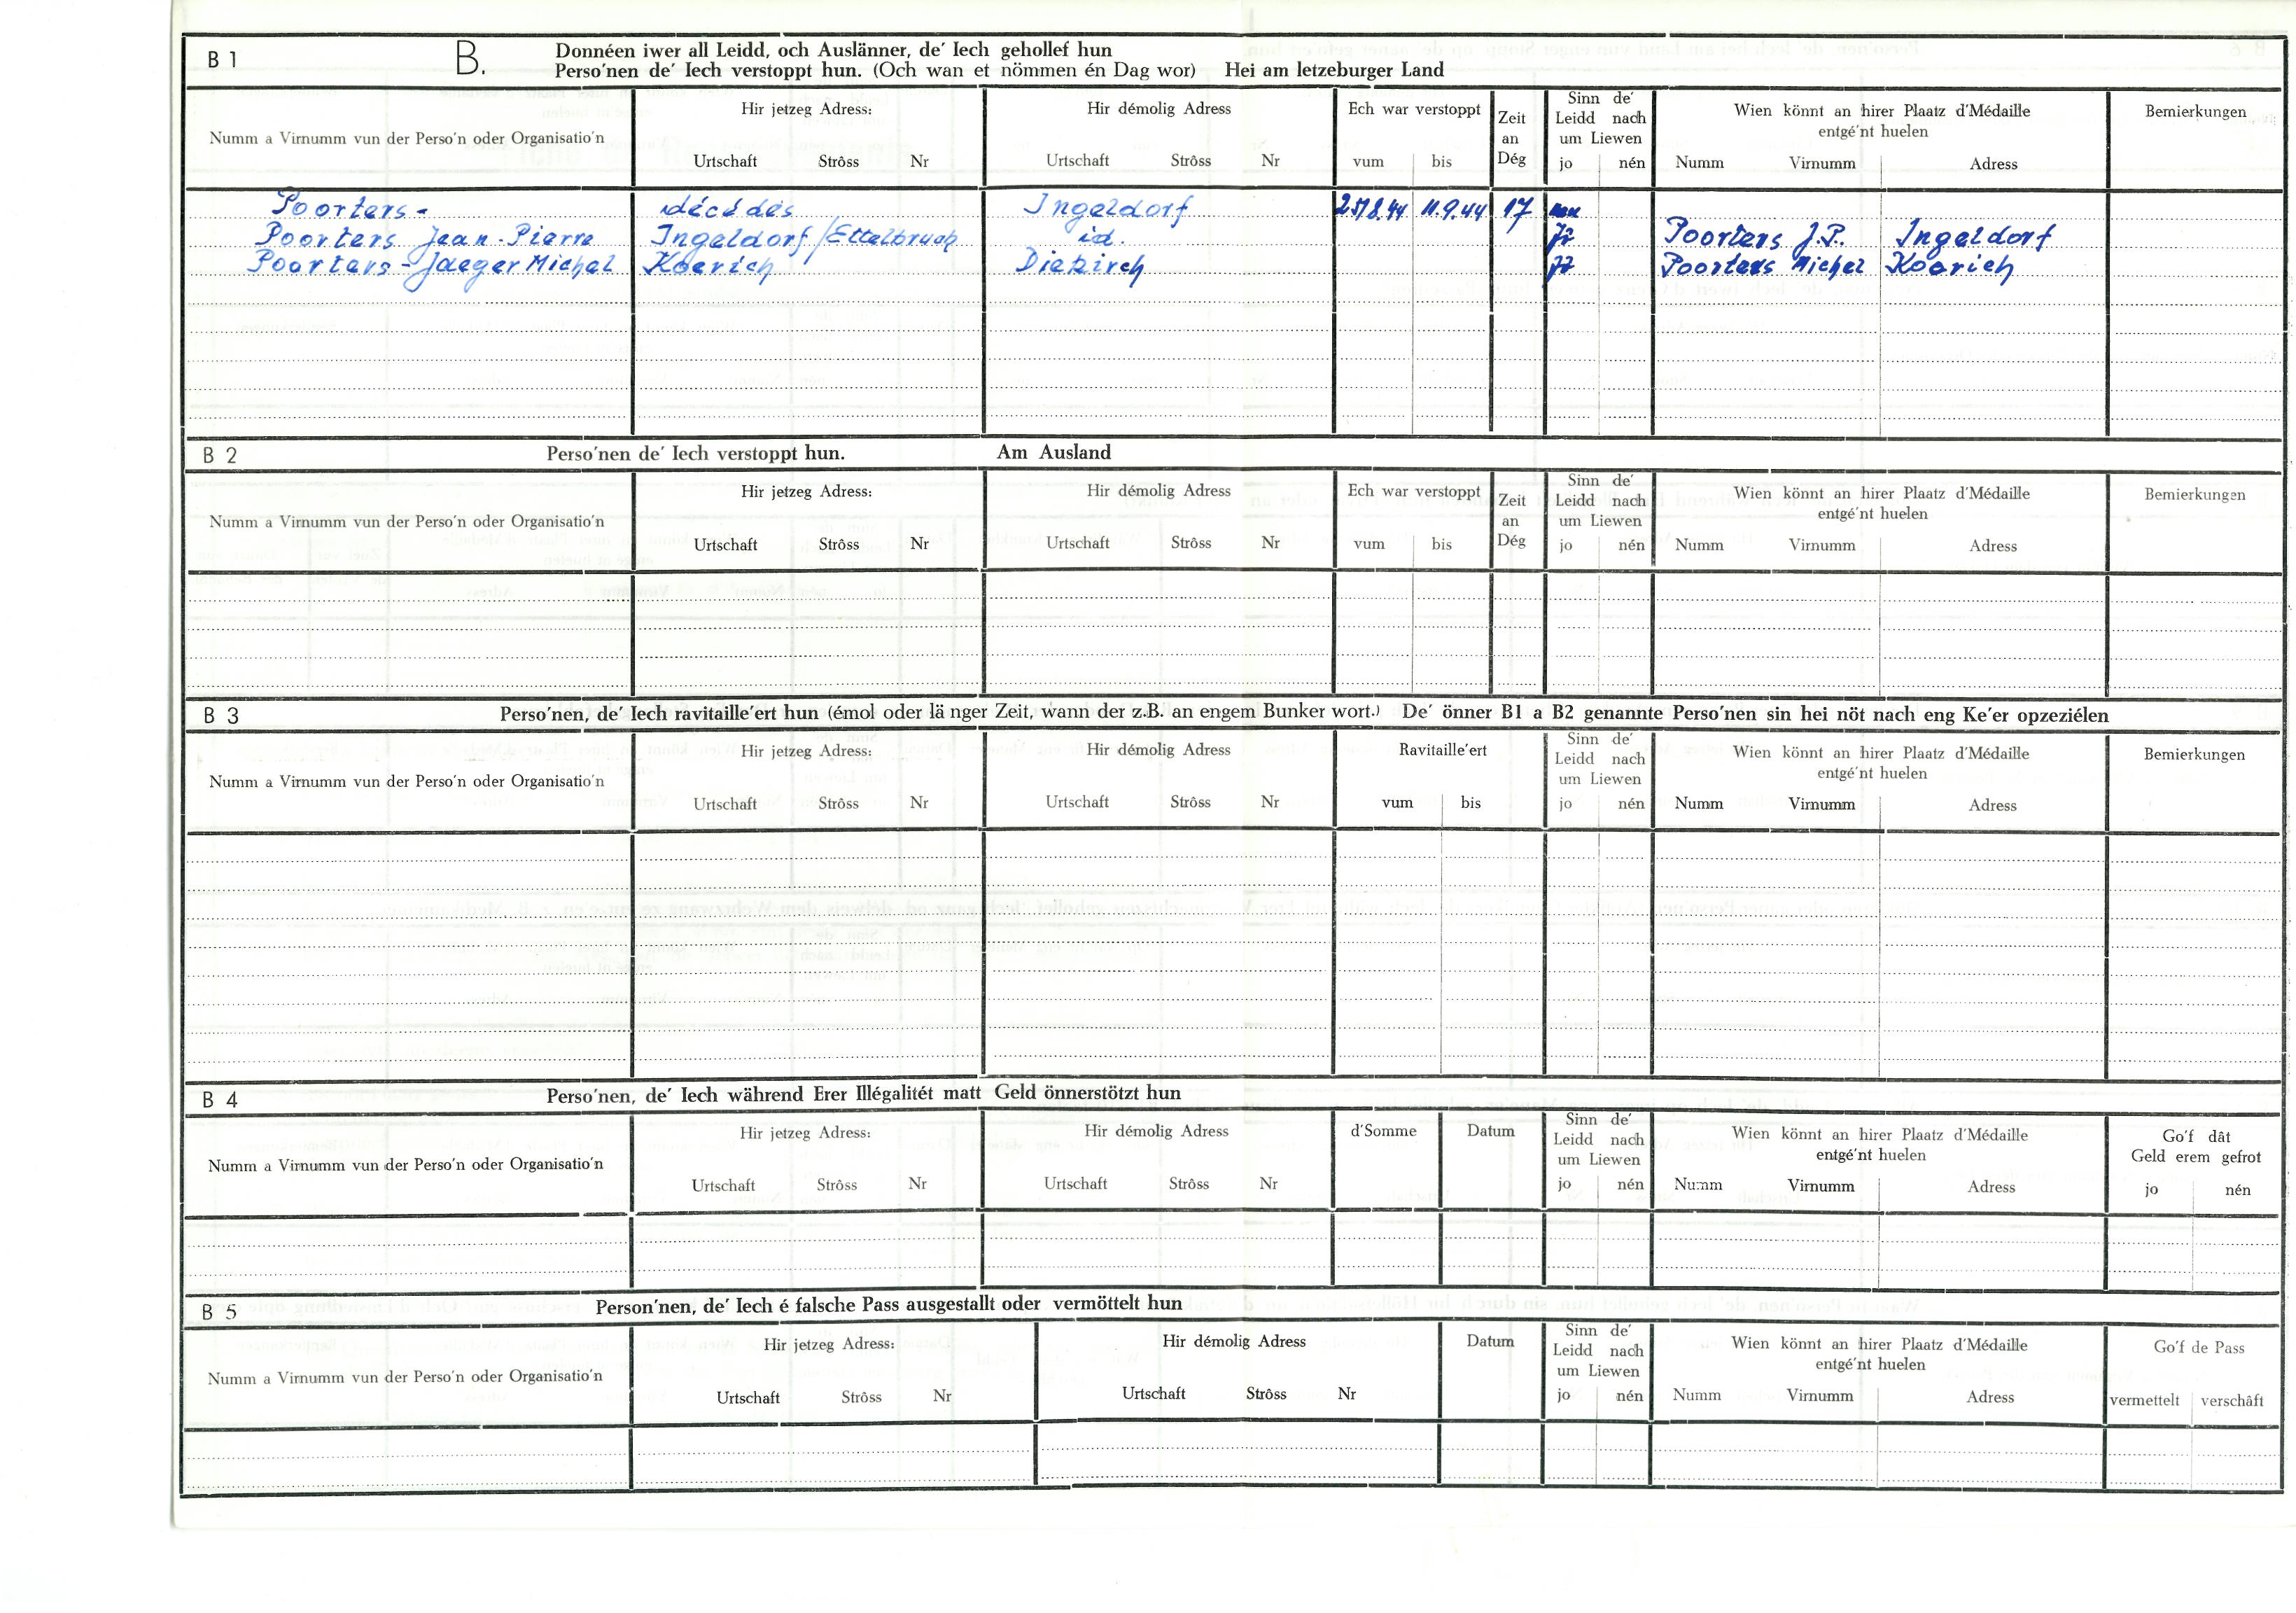 B 1 B. Donnéen iwer all Leidd, och Auslänner, de′ Iech gehollef hun
Perso′nen de′ Iech verstoppt hun. (Och wan et nömmen én Dag wor) Hei am letzeburger Land
Numm a Virnumm vun der Perso′n oder Organisatio′n
Hir jetzeg Adress:
Urtschaft Strôss Nr
Hir démolig Adress
Urtschaft Strôss Nr
Ech war verstoppt
vum bis
Zeit
an
Dég
Sinn de′
Leidd nach
um Liewen
jo nén
Wien könnt an hirer Plaatz d′Médaille
entgé′nt huelen
Numm Virnumm Adress
Bemierkungen
Poorters - décédés Ingeldorf 11.9.44 17
Poorters Jean-Pierre Ingeldorf/Ettelbruch id. Jo Poorters J.P. Ingeldorf
Poorters-Jaeger Michel Koerich Diekirch Jo Poorters Michel Koerich
B 2 Perso′nen de′ Iech verstoppt hun. Am Ausland
Numm a Virnumm vun der Perso′n oder Organisatio′n
Hir jetzeg Adress:
Urtschaft Strôss Nr
Hir démolig Adress
Urtschaft Strôss Nr
Ech war verstoppt
vum bis
Zeit
an
Dég
Sinn de′
Leidd nach
um Liewen
jo nén
Wien könnt an hirer Plaatz d′Médaille
entgé′nt huelen
Numm Virnumm Adress
Bemierkungen
B 3 Perso′nen, de′ Iech ravitaille′ert hun (émol oder länger Zeit, wann der z.B. an engem Bunker wort.) De′ önner B1 a B2 genannte Perso′nen sin hei nöt nach eng Ke′er opzeziélen
Numm a Virnumm vun der Perso′n oder Organisatio′n
Hir jetzeg Adress:
Urtschaft Strôss Nr
Hir démolig Adress
Urtschaft Strôss Nr
Ravitaille′ert
vum bis
Sinn de′
Leidd nach
um Liewen
jo nén
Wien könnt an hirer Plaatz d′Médaille
entgé′nt huelen
Numm Virnumm Adress
Bemierkungen
B 4 Perso′nen, de′ Iech während Erer Illégalitét matt Geld önnerstötzt hun
Numm a Virnumm vun der Perso′n oder Organisatio′n
Hir jetzeg Adress:
Urtschaft Strôss Nr
Hir démolig Adress
Urtschaft Strôss Nr
d′Somme
Datum
Sinn de′
Leidd nach
um Liewen
jo nén
Wien könnt an hirer Plaatz d′Médaille
entgé′nt huelen
Numm Virnumm Adress
Go′f dât
Geld erem gefrot
jo nén
B 5 Person′nen, de′ Iech é falsche Pass ausgestallt oder vermöttelt hun
Numm a Virnumm vun der Perso′n oder Organisatio′n
Hir jetzeg Adress:
Urtschaft Strôss Nr
Hir démolig Adress
Urtschaft Strôss Nr
Datum
Sinn de′
Leidd nach
um Liewen
jo nén
Wien könnt an hirer Plaatz d′Médaille
entgé′nt huelen
Numm Virnumm Adress
Go′f de Pass
vermettelt verschâft